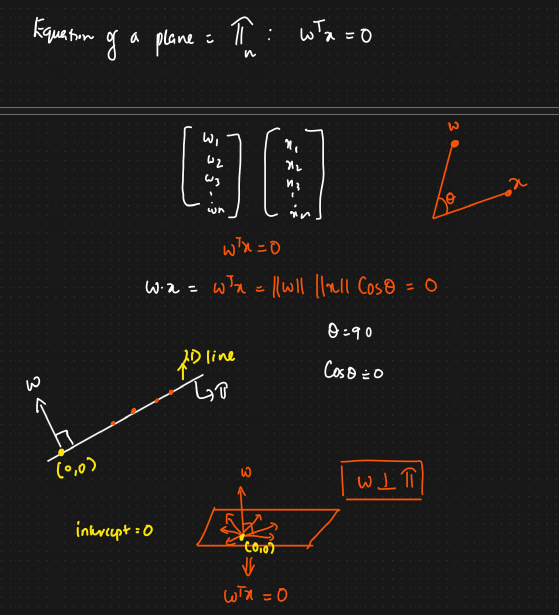 Equation of a plane = π_n : wᵀx = 0
[w₁ w₂ w₃ ⋮ wₙ] [x₁ x₂ x₃ ⋮ xₙ]
w
θ
x
wᵀx = 0
w·x = wᵀx = ||w|| ||x|| Cosθ = 0
θ = 90
Cosθ = 0
2D line
π
w
(0,0)
w ⊥ π
w
intercept = 0
(0,0)
wᵀx = 0